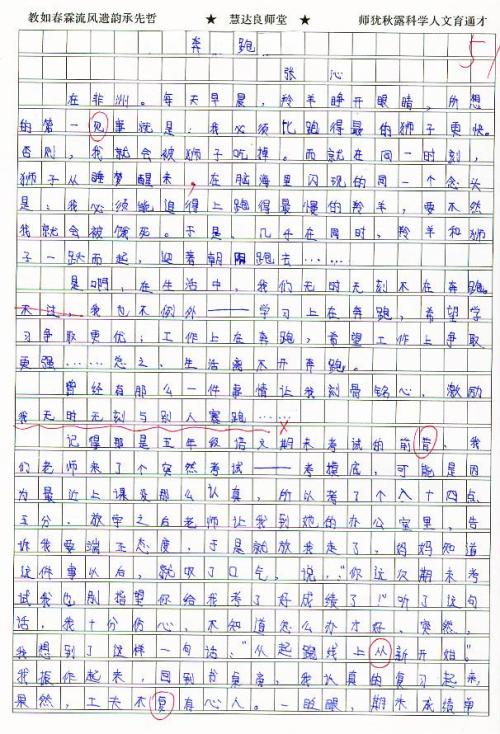 教如春霖流风遗韵承先哲 ★ 慧达良师堂 ★ 师犹秋露科学人文育通才
奔 跑
51
张 沁
在非洲。每天早晨,羚羊睁开眼睛,所想
的第一见事就是:我必须比跑得最的狮子更快。
否则,我就会被狮子吃掉。而就在同一时刻,
狮子从睡梦醒来,在脑海里闪现的同一个念头
是:我必须能追得上跑得最慢的羚羊,要不然
我就会被饿死。于是,几乎在同时,羚羊和狮
子一跃而起,迎着朝阳跑去……
是啊,在生活中,我们无时无刻不在奔跑。
不过,我也不例外——学习上在奔跑,希望学
习争取更优;工作上在奔跑,希望工作上争取
更强……总之,生活离不开奔跑。
曾经有那么一件事情让我刻骨铭心,激励
我无时无刻与别人赛跑……
记得那是五年级语文期末考试的前营,我
们老师来了个突然考试——考摸底,可能是因
为最近上课变那么认真,所以考了个八十四点
五分,放学之后老师让我到她的办公室里,告
诉我要端正态度,于是就放我走了,妈妈知道
这件事以后,就叹了口气,说:“你这次期末考
试我也别指望你给我考了好成绩了!”听了这句
话,我十分伤心,不知道怎么办才好,突然,
我想到了这样一句话:“从起跑线上从新开始。”
我振作起来,回到书桌旁,我认真的复习起来,
果然,工夫不复有心人。一眨眼,期末成绩单